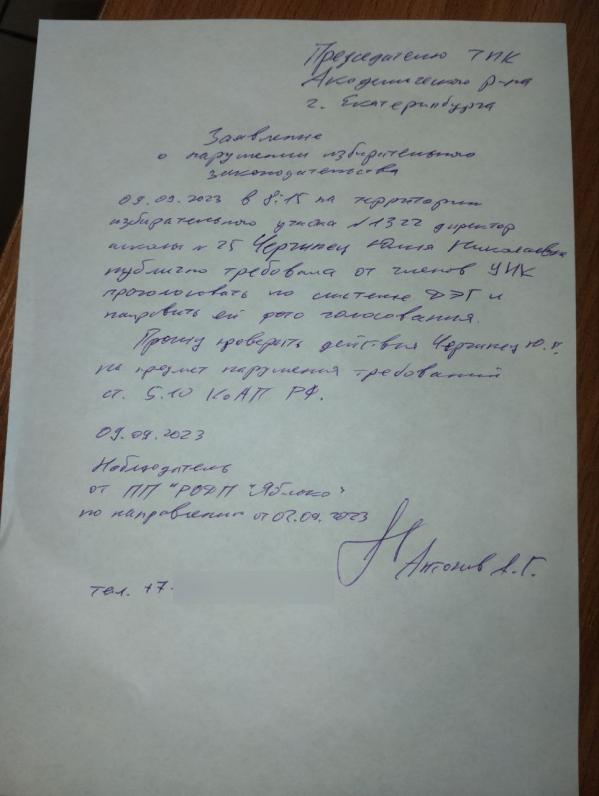 Председателю ТИК
Академического р-на
г. Екатеринбурга
Заявление
о нарушении избирательного
законодательства
09.09.2023 в 8:15 на территории
избирательного участка №1322 директор
школы №25 Черчинец Юлия Николаевна
публично требовала от членов УИК
проголосовать по системе ДЭГ и
направить ей фото голосования.
Прошу проверить действия Черчинец Ю.Н.
на предмет нарушения требований
ст. 5.10 КоАП РФ.
09.09.2023
Наблюдатель
от ПП "РОДП "Яблоко"
по направлению от 02.09.2023
Антонив А.Г.
тел. +7.